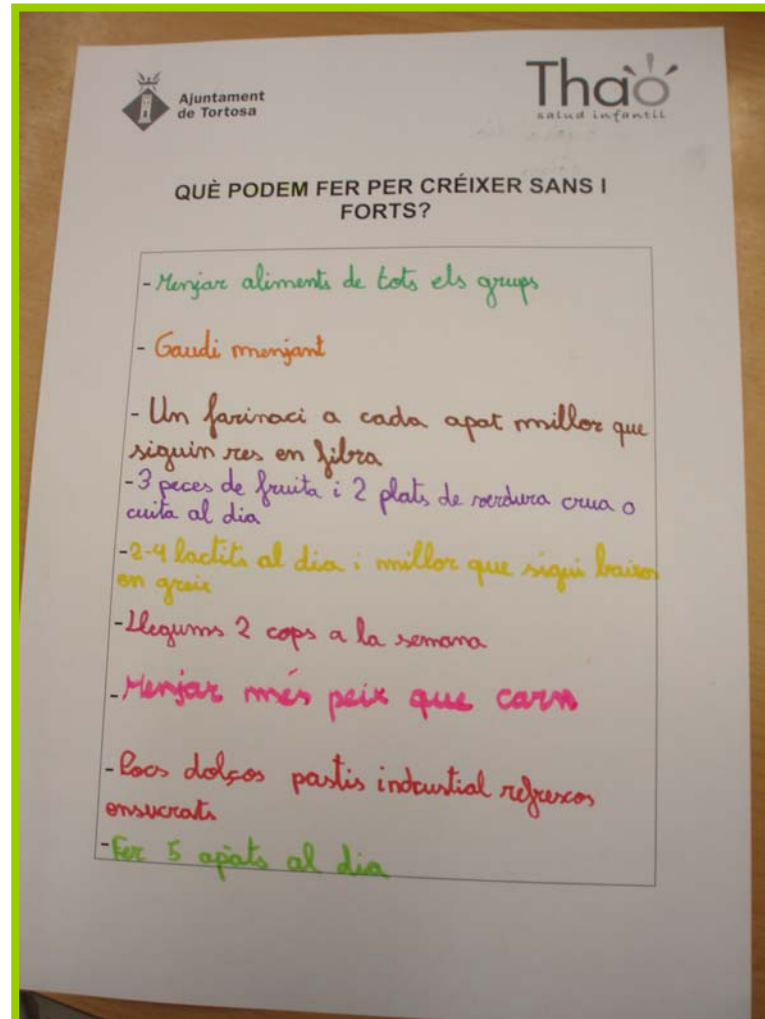 Ajuntament
de Tortosa
Thaó
salud infantil
QUÈ PODEM FER PER CRÉIXER SANS I
FORTS?
- Menjar aliments de tots els grups
- Gaudi menjant
- Un farinaci a cada apat millor que
siguin res en fibra
- 3 peces de fruita i 2 plats de verdura crua o
cuita al dia
- 2-4 lactits al dia i millor que sigui baixos
en greix
- Llegums 2 cops a la semana
- Menjar més peix que carn
- Pocs dolços pastis indcustial refrescos
ensucrats
- Fer 5 apàts al dia